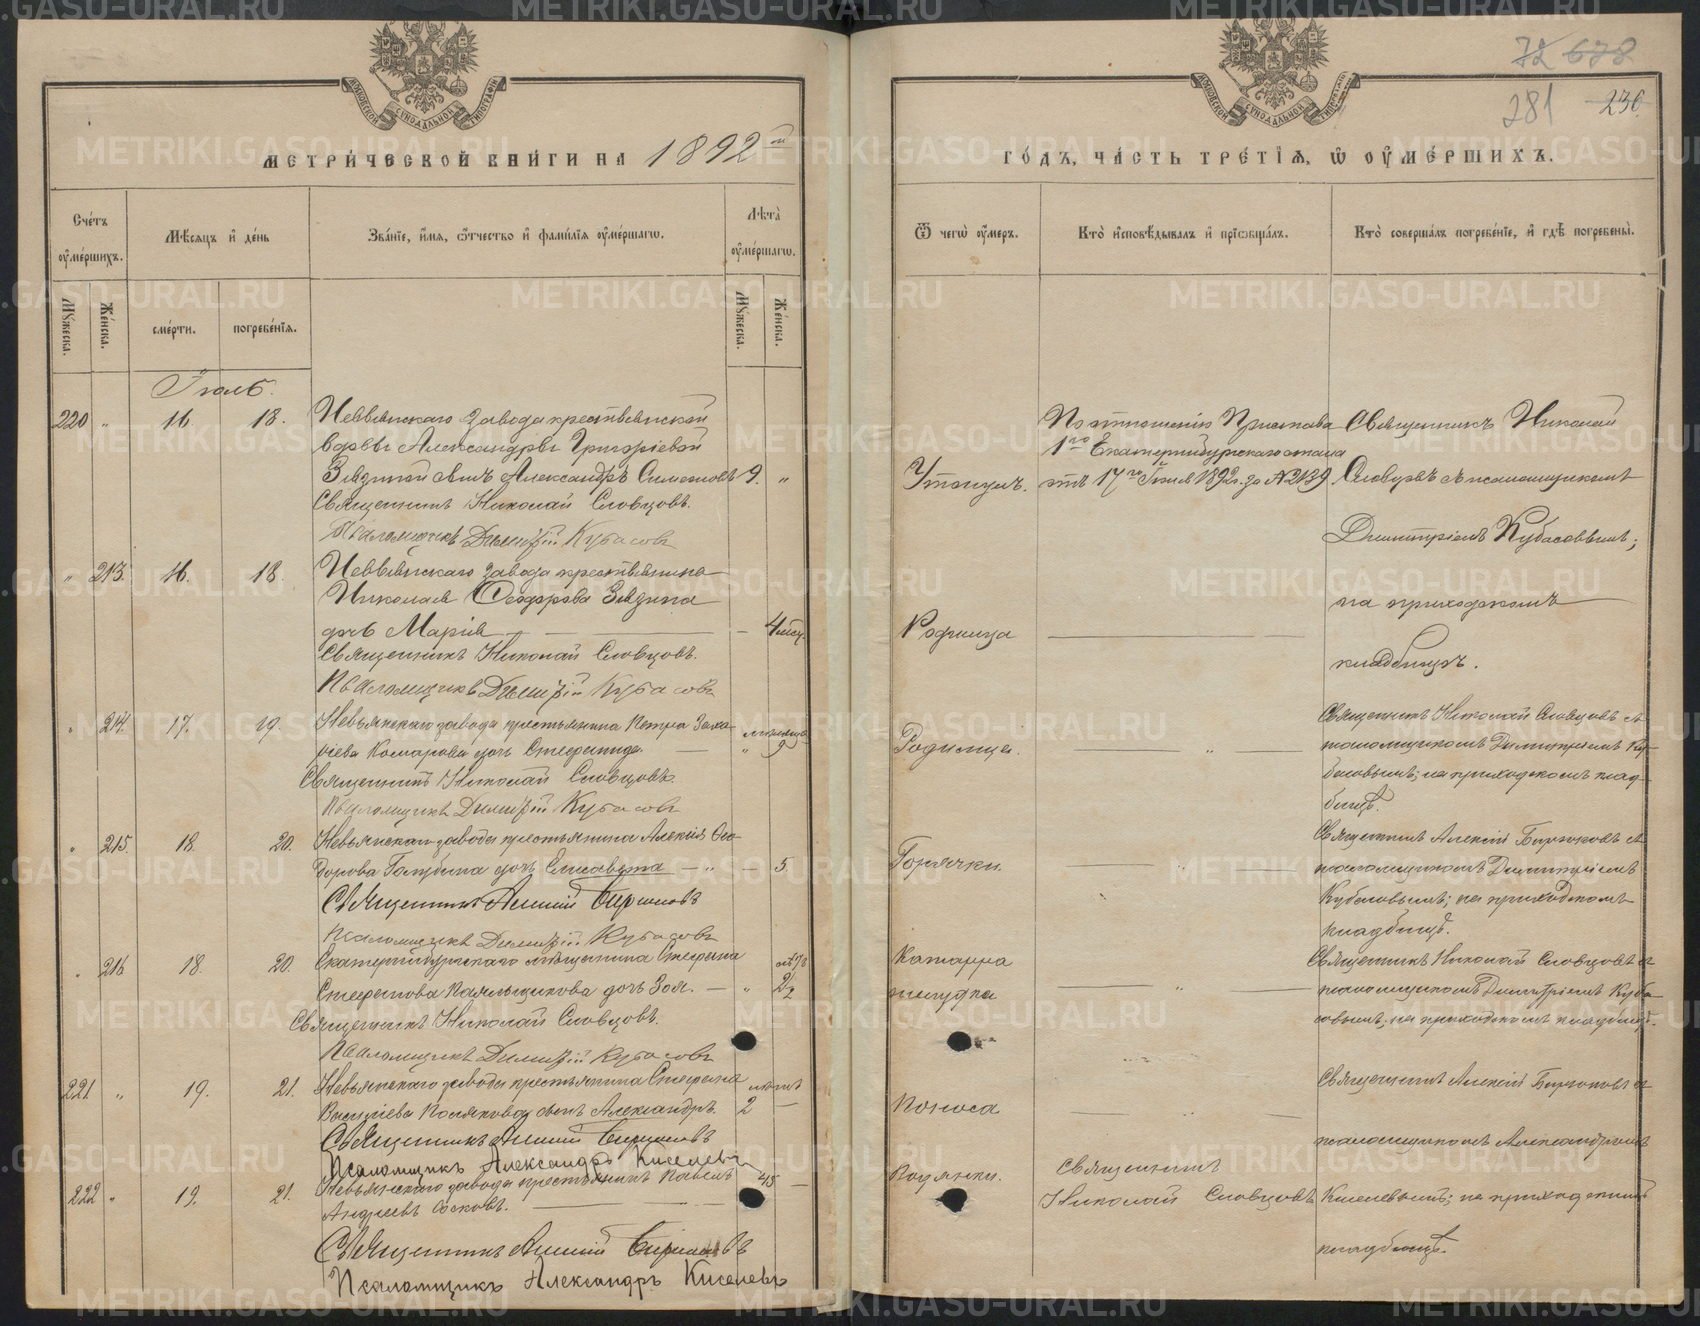 72 672
МОСКОВСКОЙ СѴНОДАЛЬНОЙ ТИПОГРАФІИ
МОСКОВСКОЙ СѴНОДАЛЬНОЙ ТИПОГРАФІИ
281 236
МЕТРИ́ЧЕСКОЙ КНИ́ГИ НА 1892й
ГО́ДЪ, ЧА́СТЬ ТРЕ́ТІѦ, Ѡ ОУ҆МЕ́РШИХЪ.
Сче́тъ оу҆ме́ршихъ.
Мѣ́сяцъ и҆ де́нь
Зва́нїе, и҆́мя, ѻ҆́тчество и҆ фами́лїя оу҆ме́ршагѡ.
Лѣта̀ оу҆ме́ршагѡ.
Ѿ чегѡ̀ оу҆́меръ.
Кто̀ и҆сповѣ́дывалъ и҆ прїѻбща́лъ.
Кто̀ соверша́лъ погребе́нїе, и҆ гдѣ̀ погребены̀.
Мꙋ́жеска.
Же́нска.
сме́рти.
погребе́нїя.
Мꙋ́жеска.
Же́нска.
Іюль.
220 " 16. 18. Невьянскаго завода крестьянской
вдовы Александры Григоріевой
Зязиной сынъ Александръ Симеоновъ 9. "
Священникъ Николай Словцовъ.
Псаломщикъ Димитрій Кубасовъ
Утонулъ.
По отношенію Пристава
1го Екатеринбургскаго стана
отъ 17го Іюля 1892 г. за №2139
Священникъ Николай
Словцовъ съ псаломщикомъ
Димитріемъ Кубасовымъ;
на приходскомъ
кладбищѣ.
" 213. 16. 18. Невьянскаго завода крестьянина
Николая Ѳеодорова Зязина
дочь Марія — 4 мѣс.
Священникъ Николай Словцовъ.
Псаломщикъ Димитрій Кубасовъ
Родимца
" 214. 17. 19. Невьянскаго завода крестьянина Петра Заха-
ріева Комарова дочь Стефанида. — " 9
Священникъ Николай Словцовъ.
Псаломщикъ Димитрій Кубасовъ
Родимца. "
Священникъ Николай Словцовъ съ
псаломщикомъ Димитріемъ Ку-
басовымъ; на приходскомъ клад-
бищѣ.
" 215. 18. 20. Невьянскаго завода крестьянина Алексія Ѳео-
дорова Голубина дочь Елисавета — " — 5.
Священникъ Алексій Бирюковъ
Псаломщикъ Димитрій Кубасовъ
Горячки. "
Священникъ Алексій Бирюковъ съ
псаломщикомъ Димитріемъ
Кубасовымъ; на приходскомъ
кладбищѣ.
" 216 18. 20. Екатеринбургскаго мѣщанина Стефана
Стефанова Паяльщикова дочь Зоя. — "
Священникъ Николай Словцовъ.
Псаломщикъ Димитрій Кубасовъ
Катарра
желудка "
Священникъ Николай Словцовъ съ
псаломщикомъ Димитріемъ Куба-
совымъ; на приходскомъ кладбищѣ.
221 " 19. 21. Невьянскаго завода крестьянина Стефана
сынъ Александръ. 2 —
Священникъ Алексій Бирюковъ
Псаломщикъ Александръ Киселевъ
Поноса "
Священникъ Алексій Бирюковъ съ
псаломщикомъ Александромъ
Киселевымъ; на приходскомъ
кладбищѣ.
222 " 19. 21. Невьянскаго завода крестьянинъ Павелъ 45 —
Андреевъ Сосковъ.
Священникъ Алексій Бирюковъ
Псаломщикъ Александръ Киселевъ
Водянки.
Священникъ
Николай Словцовъ
METRIKI.GASO-URAL.RU